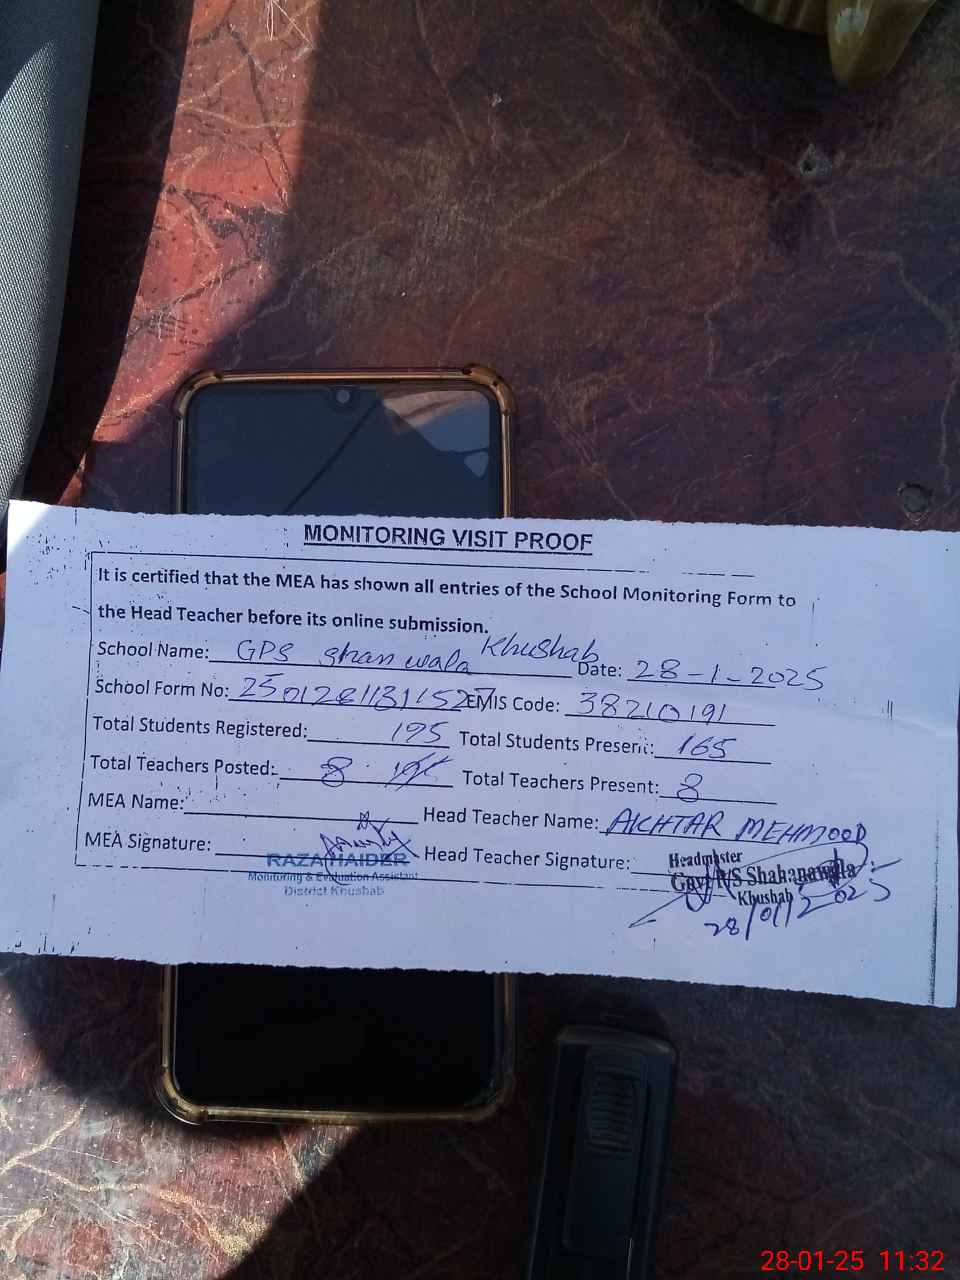 MONITORING VISIT PROOF
It is certified that the MEA has shown all entries of the School Monitoring Form to
the Head Teacher before its online submission.
School Name: GPS shan wala Khushab Date: 28-1-2025
School Form No: EMIS Code: 38210191
Total Students Registered: 195 Total Students Present: 165
Total Teachers Posted: 8 Total Teachers Present: 8
MEA Name: Head Teacher Name: AKHTAR MEHMOOD
MEA Signature: Head Teacher Signature:
RAZA HAIDER
Monitoring & Evaluation Assistant
District Khushab
Headmaster
Govt P/S Shahanawala
Khushab
28/01/2025
28-01-25 11:32